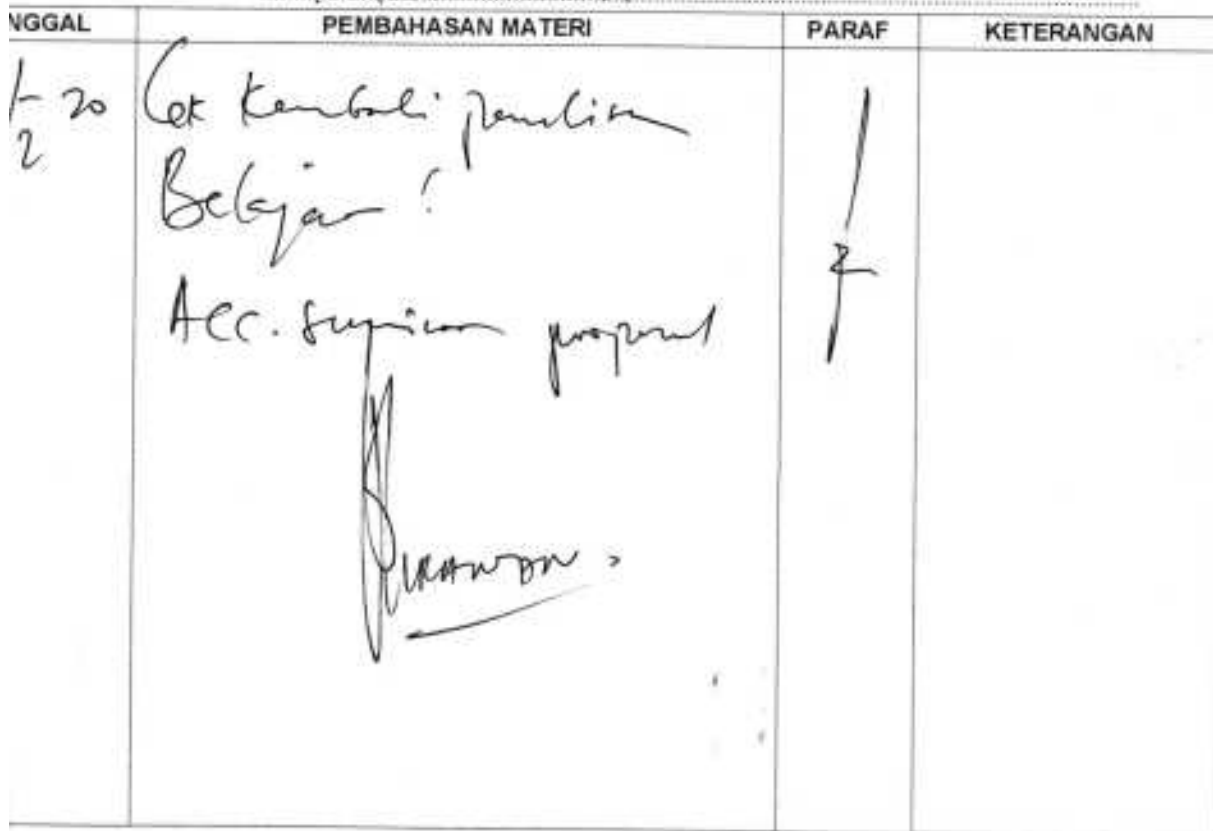 NGGAL PEMBAHASAN MATERI PARAF KETERANGAN
20 Cek Kembali penulisan
2
Belajar !
Acc. proposal